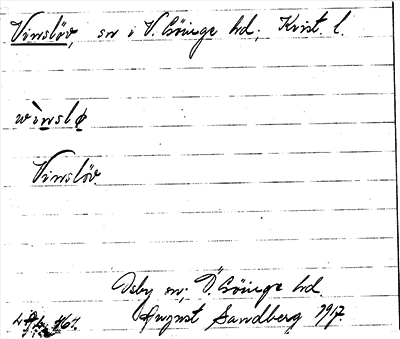 Vinslöv, sn i V. Göinge hd, Krist. l.
wìnslø
Vinslöv
Visby sn, V. Göinge hd.
August Sandberg 1917.